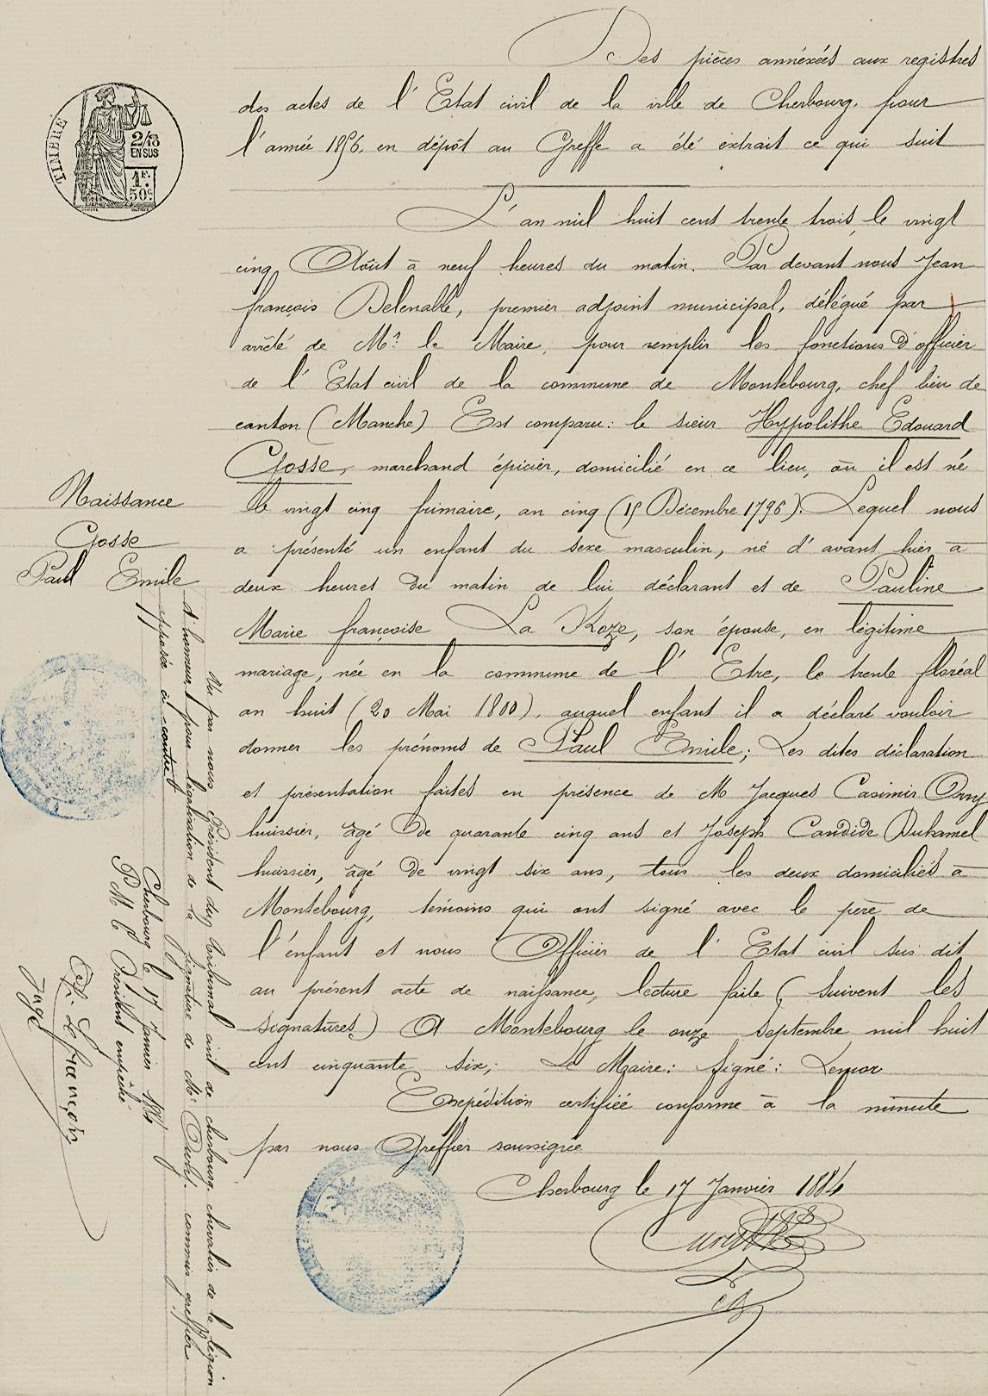 TIMBRE
2/10
EN SUS
1F.
50c
Des pièces annéxées aux registres
des actes de l'Etat civil de la ville de Cherbourg, pour
l'année 1856, en dépôt au Greffe a été extrait ce qui suit
L'an mil huit cent trente trois, le vingt
cinq Août à neuf heures du matin. Par devant nous Jean
françois Delenable, premier adjoint municipal, délégué par
arrêté de Mr le Maire, pour remplir les fonctions d'officier
de l'Etat civil de la commune de Montebourg, chef lieu de
canton (Manche) Est comparu: le sieur Hyppolithe Edouard
Gosse, marchand épicier, domicilié en ce lieu, où il est né
le vingt cinq frimaire, an cinq (15 Décembre 1796). Lequel nous
a présenté un enfant du sexe masculin, né d'avant hier à
deux heures du matin de lui déclarant et de Pauline
Marie françoise La Roze, son épouse, en légitime
mariage, née en la commune de l'Etre, le trente floréal
an huit (20 Mai 1800). auquel enfant il a déclaré vouloir
donner les prénoms de Paul Emile; Les dites déclaration
et présentation faites en présence de M Jacques Casimir
huissier, âgé de quarante cinq ans et Joseph Candide Duhamel
huissier, âgé de vingt six ans, tous les deux domiciliés à
Montebourg, témoins qui ont signé avec le père de
l'enfant et nous Officier de l'Etat civil sus dit
au présent acte de naissance, lecture faite (suivent les
signatures) A Montebourg le onze septembre mil huit
cent cinquante six; Le Maire: signé: Lemor
Expédition certifiée conforme à la minute
par nous Greffier soussigné
Cherbourg le 17 Janvier 1884
Naissance
Gosse
Paul Emile
Vu par nous Président du Tribunal civil de cherbourg, chevalier de la légion
d'honneur, pour légalisation de la signature de Mr commis greffier
apposée ci contre
Cherbourg le 17 Janvier 1884
P. M. le Président empêché
Lefrançois
Juge